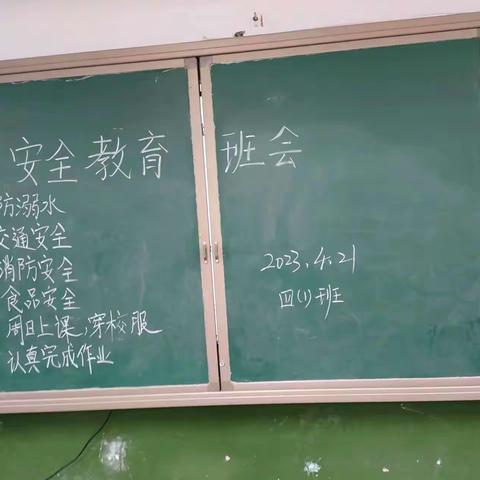 安全教育班会
防溺水
交通安全
消防安全
食品安全
周日上课,穿校服
认真完成作业
2023.4.21
四(1)班